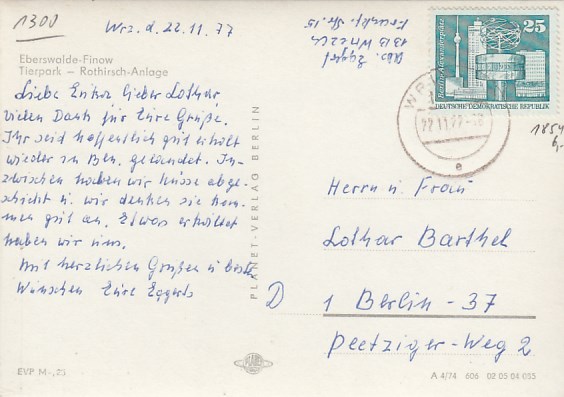 1300
Wrz. d. 22.11.77
Abs. Eggert
1313 Wriezen
Frankf. Str. 15
25
Berlin-Alexanderplatz
DEUTSCHE DEMOKRATISCHE REPUBLIK
22.11.77
e
1854
6,-
Eberswalde-Finow
Tierpark — Rothirsch-Anlage
Liebe Erika, lieber Lothar
vielen Dank für Eure Grüße.
Ihr seid hoffentlich gut erholt
wieder in Bln. gelandet. In-
zwischen haben wir Nüsse abge-
schickt u. wir denken sie kom-
men gut an. Etwas erkältet
haben wir uns.
Mit herzlichen Grüßen u beste
Wünschen Eure Eggerts
PLANET-VERLAG BERLIN
Herrn u. Frau
Lothar Barthel
D
1 Berlin - 37
Peetziger-Weg 2
EVP M -,25
PLANET
A 4/74 606 02 05 04 035